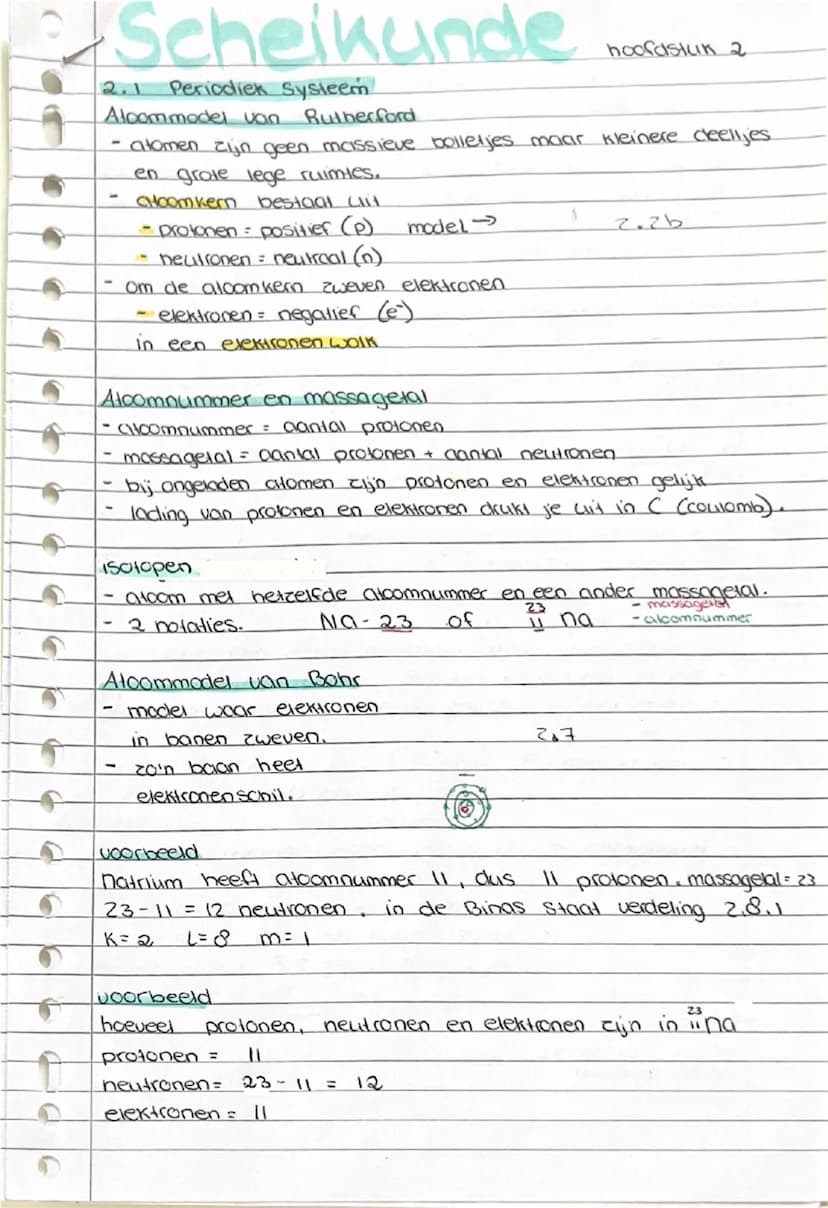 Scheikunde hoofdstuk 2
2.1 Periodiek Systeem
Atoommodel van Rutherford
- atomen zijn geen massieve bolletjes maar kleinere deeltjes
en grote lege ruimtes.
- atoomkern bestaat uit
- protonen = positief (p) model → 2.2b
- neutronen = neutraal (n)
- om de atoomkern zweven elektronen
- elektronen = negatief (e⁻)
in een elektronen wolk
Atoomnummer en massagetal
- atoomnummer = aantal protonen
- massagetal = aantal protonen + aantal neutronen
- bij ongeladen atomen zijn protonen en elektronen gelijk
- lading van protonen en elektronen drukt je uit in C (coulomb).
isotopen
- atoom met hetzelfde atoomnummer en een ander massagetal.
- 2 notaties. Na-23 of ²³₁₁ na - massagetal
- atoomnummer
Atoommodel van Bohr
- model waar elektronen
in banen zweven. 2.7
- zo'n baan heet
elektronenschil.
voorbeeld
natrium heeft atoomnummer 11, dus 11 protonen. massagetal = 23
23-11 = 12 neutronen. in de Binas staat verdeling 2,8,1
K=2 L=8 m=1
voorbeeld
hoeveel protonen, neutronen en elektronen zijn in ²³₁₁na
protonen = 11
neutronen = 23-11 = 12
elektronen = 11